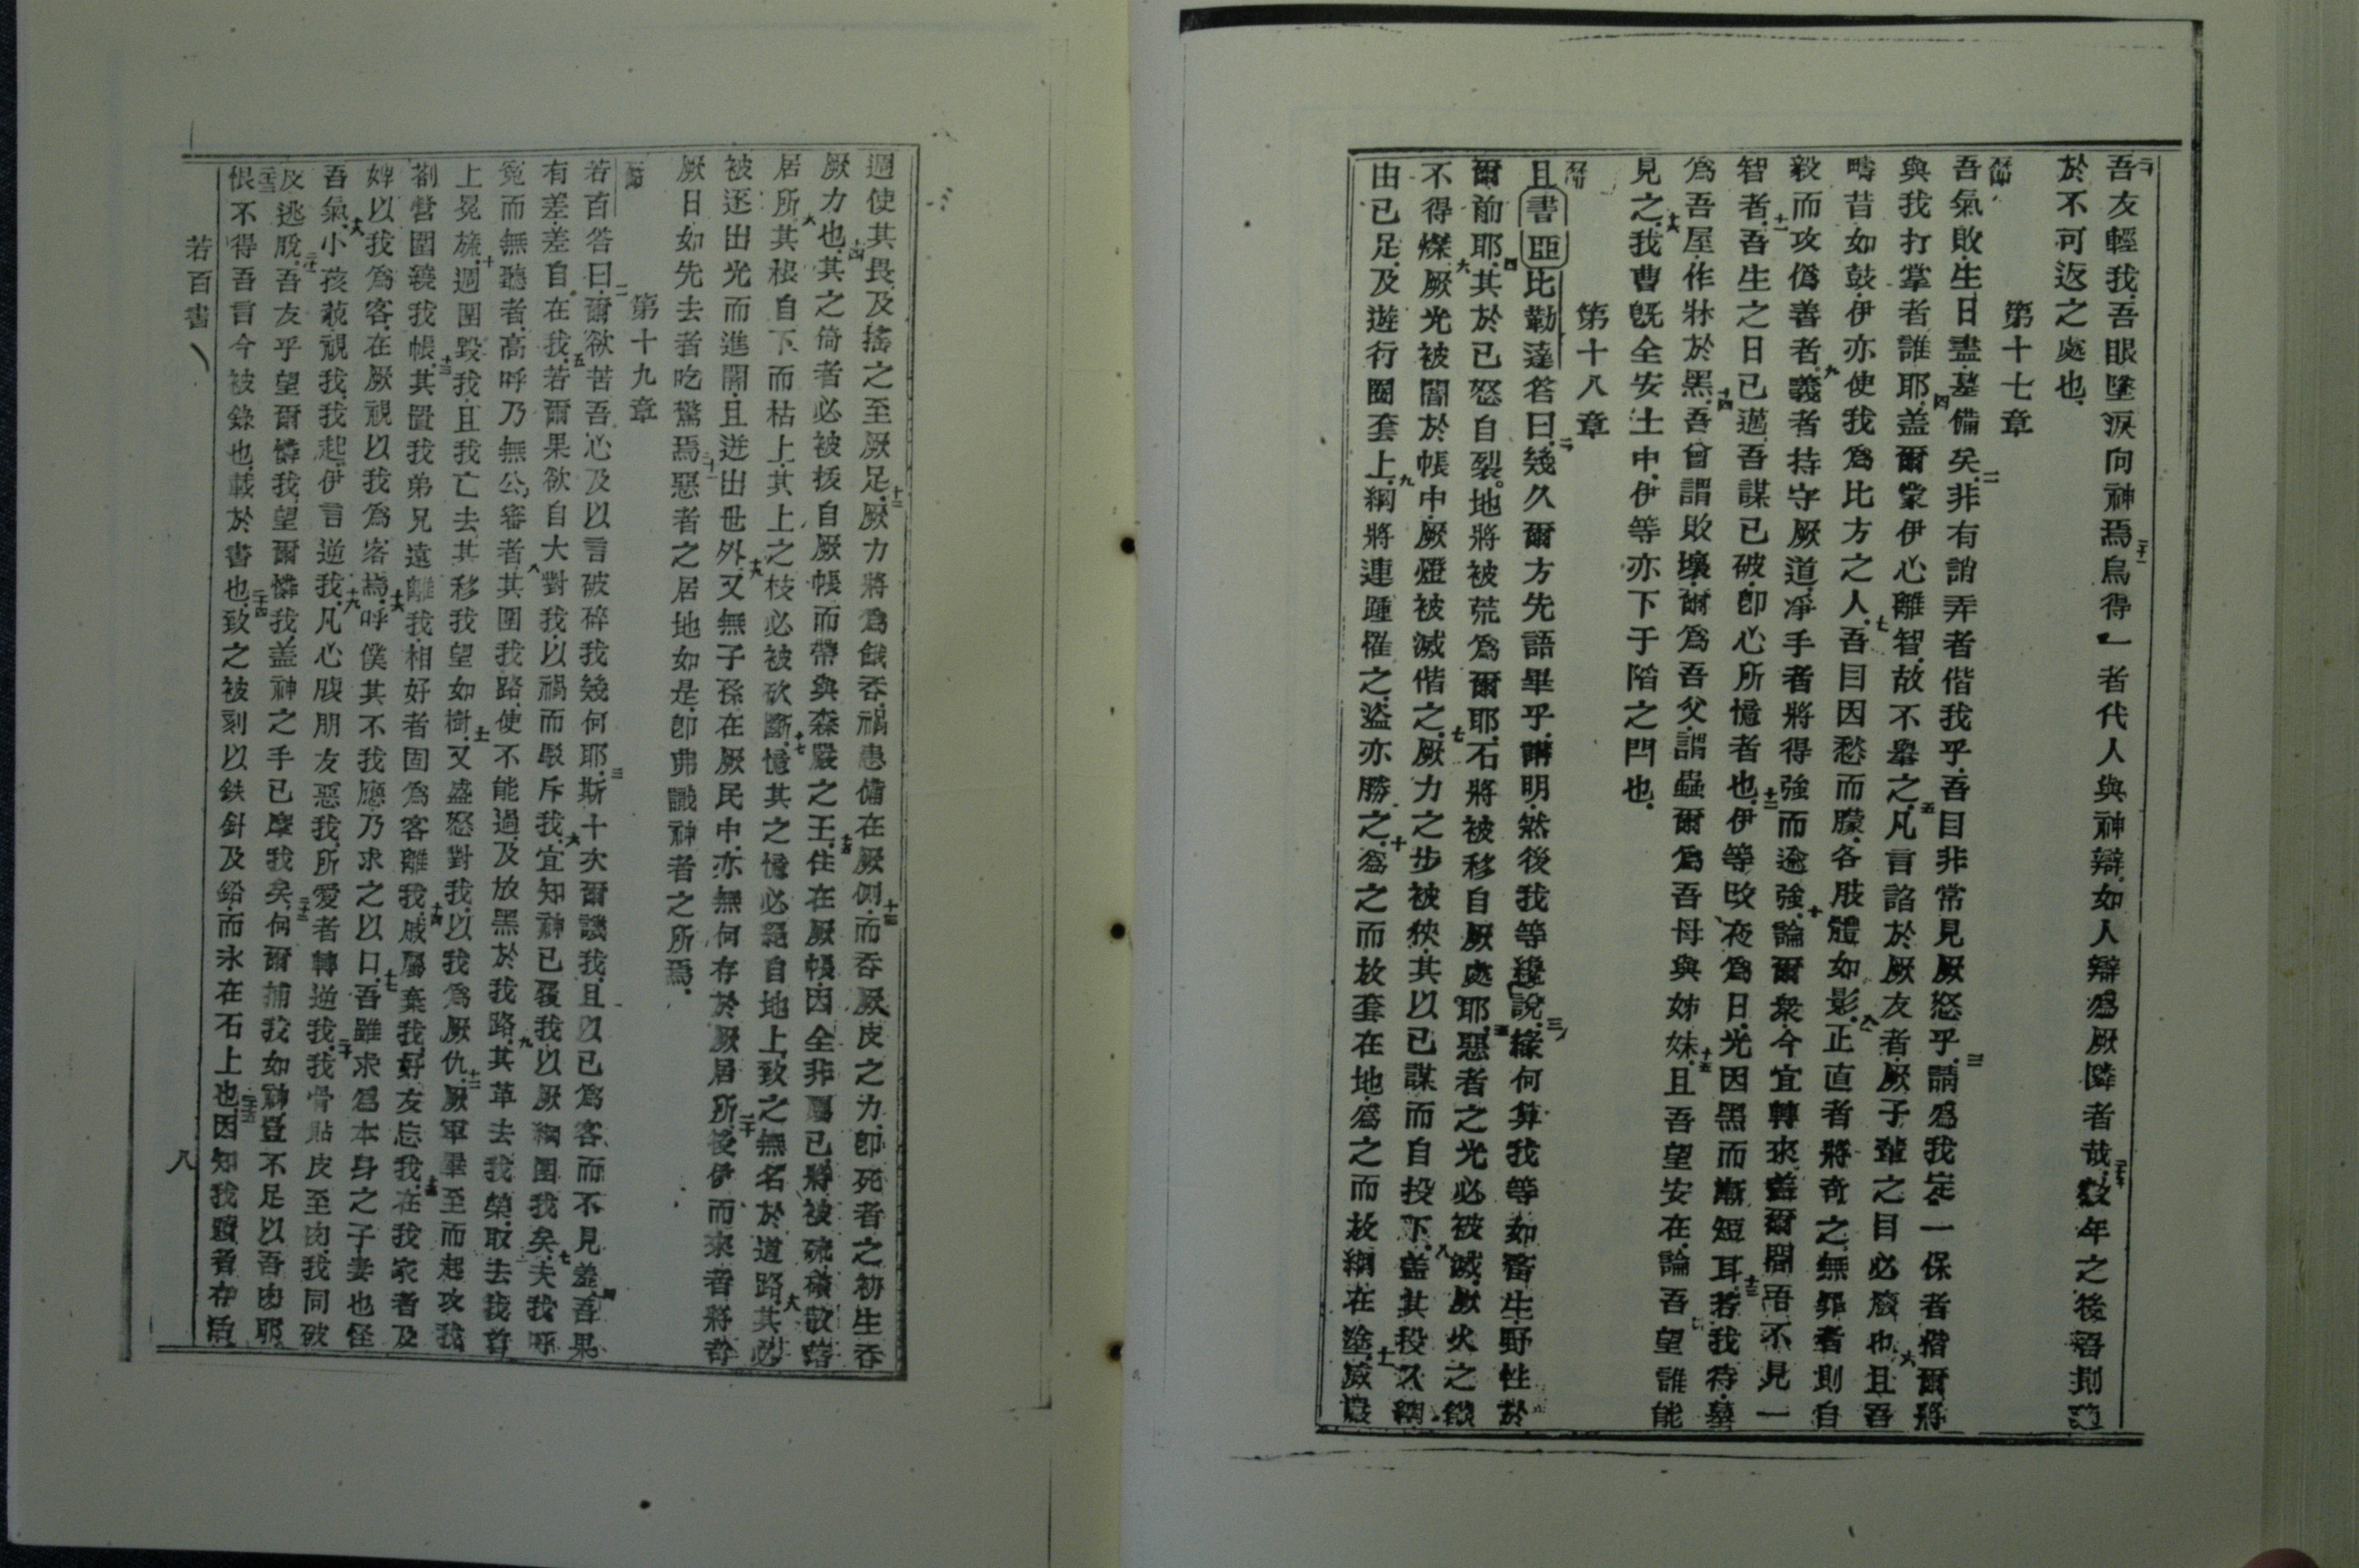 吾友輕我吾眼墜淚向神焉烏得一者代人與神辯如人辯爲厥隣者哉數年之後吾則
於不可返之處也
第十七章
吾氣敗生日盡墓備矣非有誚弄者偕我乎吾目非常見厥怒乎請爲我定一保者偕爾將
與我打掌者誰耶盖爾蒙伊心離智故不舉之凡言諂於厥友者厥子輩之目必廢也且吾
疇昔如鼓伊亦使我爲比方之人吾目因愁而朦各肢體如影正直者將奇之無罪者則自
毅而攻僞善者義者持守厥道凈手者將得強而逾強論爾衆今宜轉來盖爾間吾不見一
智者吾生之日已邁吾謀已破卽心所憶者也伊等改夜爲日光因黑而漸短耳若我待墓
爲吾屋作牀於黑吾曾謂敗壞爾爲吾父謂蟲爾爲吾母與姊妹且吾望安在論吾望誰能
見之我曹旣全安土中伊等亦下于陷之閂也
第十八章
且書亞比勒達答曰幾久爾方先語畢乎講明然後我等纔說緣何算我等如畜生野性於
爾前耶其於已怒自裂地將被荒爲爾耶石將被移自厥處耶惡者之光必被滅厥火之燄
不得爍厥光被闇於帳中厥燈被滅偕之厥力之步被狹其以已謀而自投下盖其投入網
由已足及遊行圈套上網將連踵罹之盜亦勝之爲之而放套在地爲之而放網在塗威嚴
週使其畏及搖之至厥足厥力將爲餓吞禍患備在厥側而吞厥皮之力卽死者之初生吞
厥力也其之倚者必被拔自厥帳而帶與森嚴之王住在厥帳因全非屬已將被硫磺散落
居所其根自下而枯上其上之枝必被砍斷憶其之憶必絕自地上致之無名於道路其必
被逐出光而進闇且逬出世外又無子孫在厥民中亦無何存於厥居所後伊而來者將奇
厥日如先去者吃驚焉惡者之居地如是卽弗識神者之所焉
第十九章
若百答曰爾欲苦吾心及以言破碎我幾何耶斯十次爾譏我且以已爲客而不見羞吾果
有差差自在我若爾果欲自大對我以禍而駁斥我宜知神已覆我以厥網圍我矣夫我呼
寃而無聽者高呼乃無公審者其圍我路使不能過及放黑於我路其革去我榮取去我首
上冕旒週圍毀我且我亡去其移我望如樹又盛怒對我以我爲厥仇厥軍畢至而起攻我
劄營圍繞我帳其置我弟兄遠離我相好者固爲客離我戚屬棄我好友忘我在我家者及
婢以我爲客在厥視以我爲客焉呼僕其不我應乃求之以口吾雖求爲本身之子妻也怪
吾氣小孩藐視我我起伊言逆我凡心腹朋友惡我所愛者轉逆我我骨貼皮至肉我同破
反逃脫吾友乎望爾憐我望爾憐我盖神之手已摩我矣何爾捕我如神豈不足以吾肉耶
恨不得吾言今被錄也載於書也致之被刻以鉄針及鉛而永在石上也因知我贖者存活
若百書
八